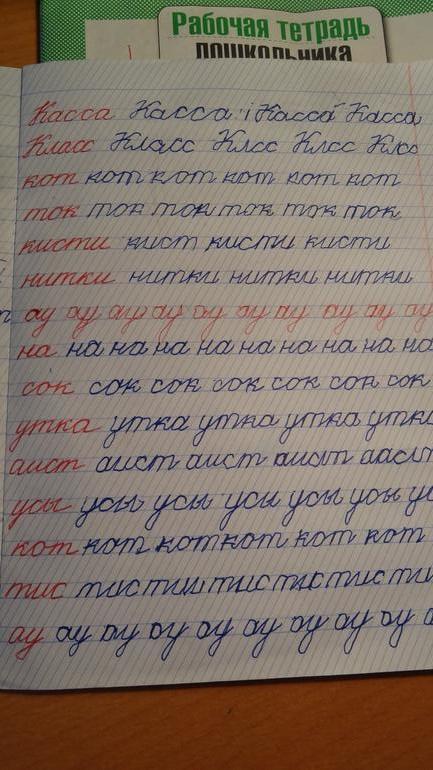 Рабочая тетрадь
дошкольника
Касса Касса Касса Касса
Класс Класс Клсс Клсс Клсс
кот кот кот кот кот кот
ток ток ток ток ток ток
кисти кист кисти кисти
нитки нитки нитки нитки
ау ау ау ау ау ау ау ау ау ау
на на на на на на на на на на
сок сок сок сок сок сок сок
утка утка утка утка утки
аист аист аист аист
усы усы усы усы усы усы
кот кот кот кот кот кот
тис тис тис тис тис
ау ау ау ау ау ау ау ау ау